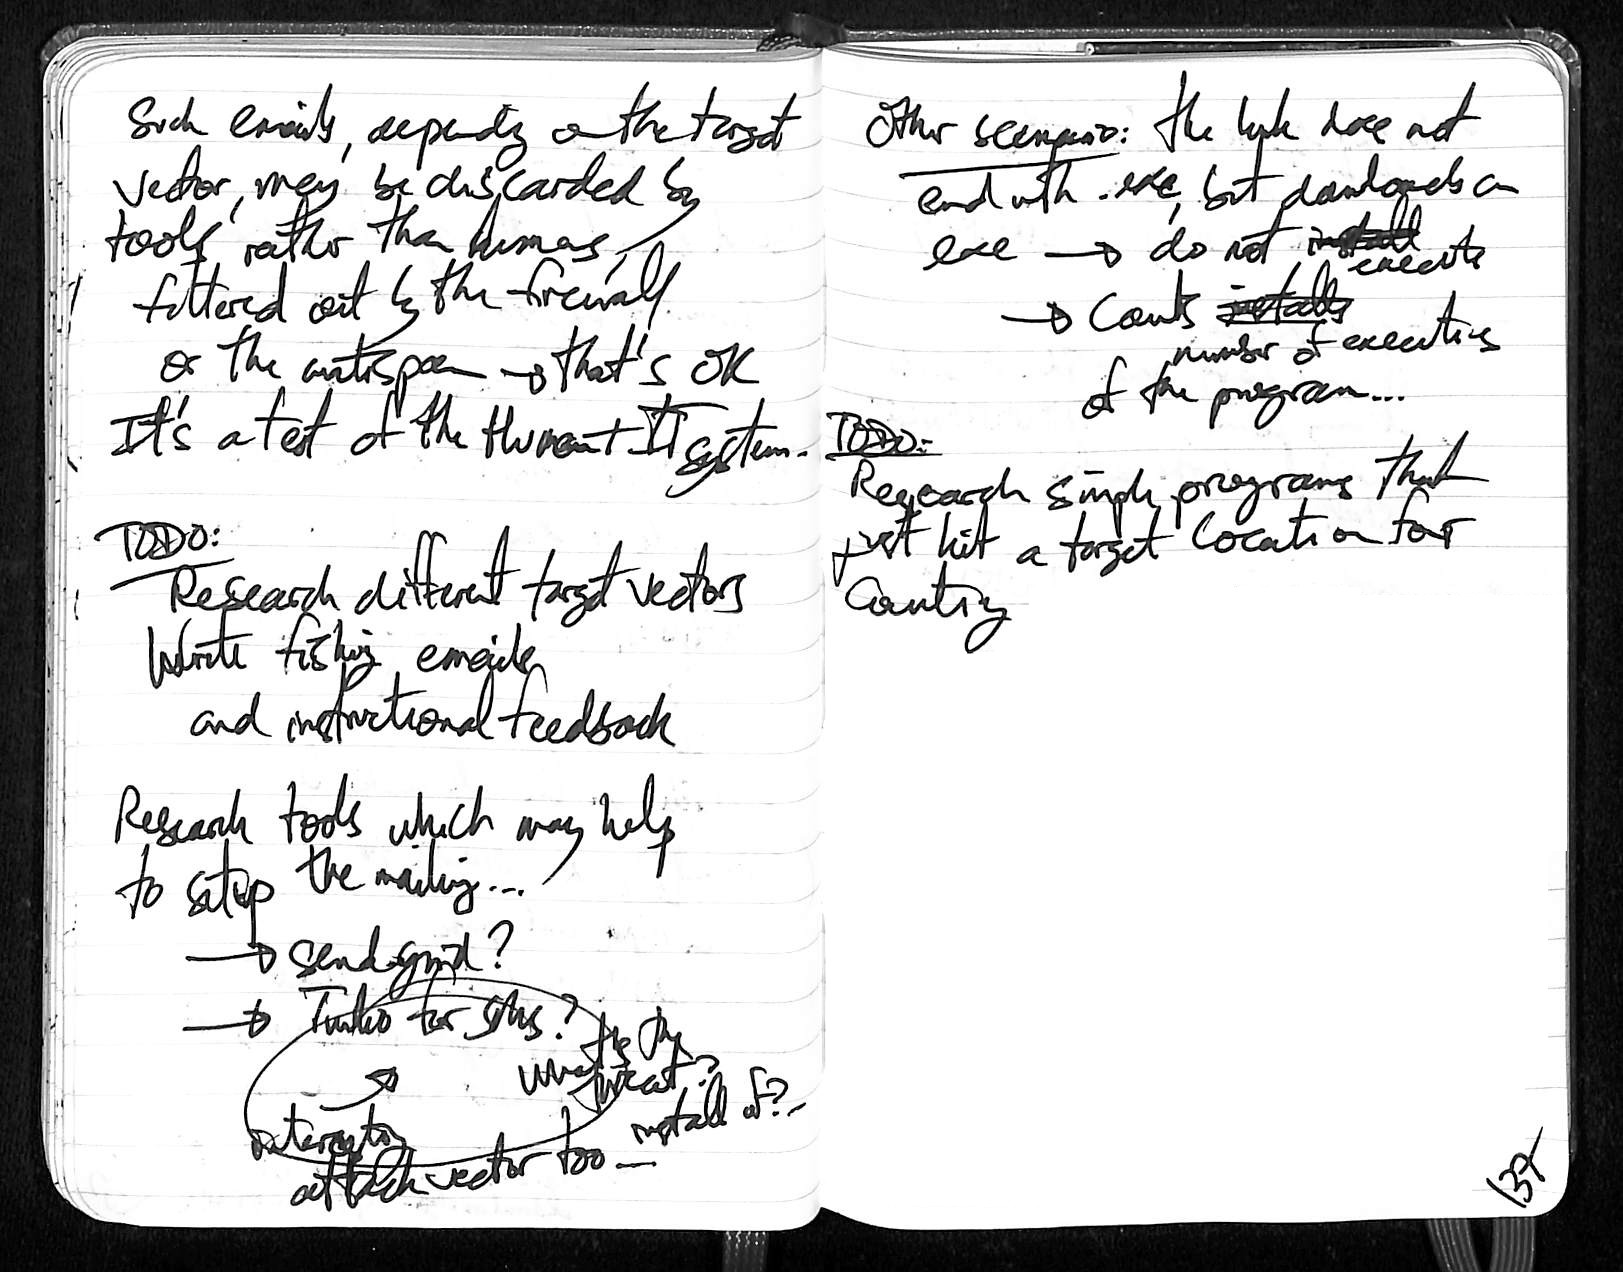 Such emails, depending on the target
vector, may be discarded by
tools rather than humans,
filtered out by the firewall
or the antispam → that's OK
It's a test of the Human + IT system.
TODO:
Research different target vectors
Write fishing emails
and instructional feedback
Research tools which may help
to setup the mailing...
→ sendgrid?
→ Twilio for SMS?
what is the
threat?
install of?..
interesting
attack vector too —
Other scenario: the link does not
end with .exe, but downloads an
exe → do not install execute
→ Counts installs
number of executions
of the program...
TODO:
Research simple programs that
just hit a target location for
counting
137